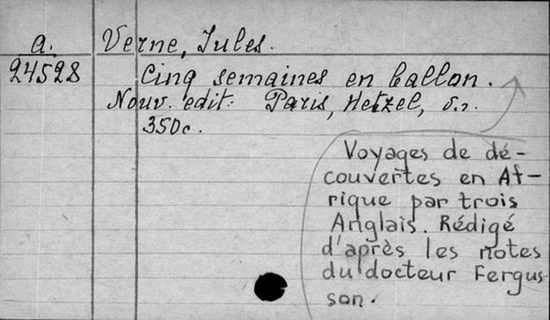 a.
24528
Verne, Jules.
Cinq semaines en ballon.
Nouv. edit. Paris, Hetzel, s.a.
350c.
Voyages de dé-
couvertes en Af-
rique par trois
Anglais. Rédigé
d'après les notes
du docteur Fergus-
son.